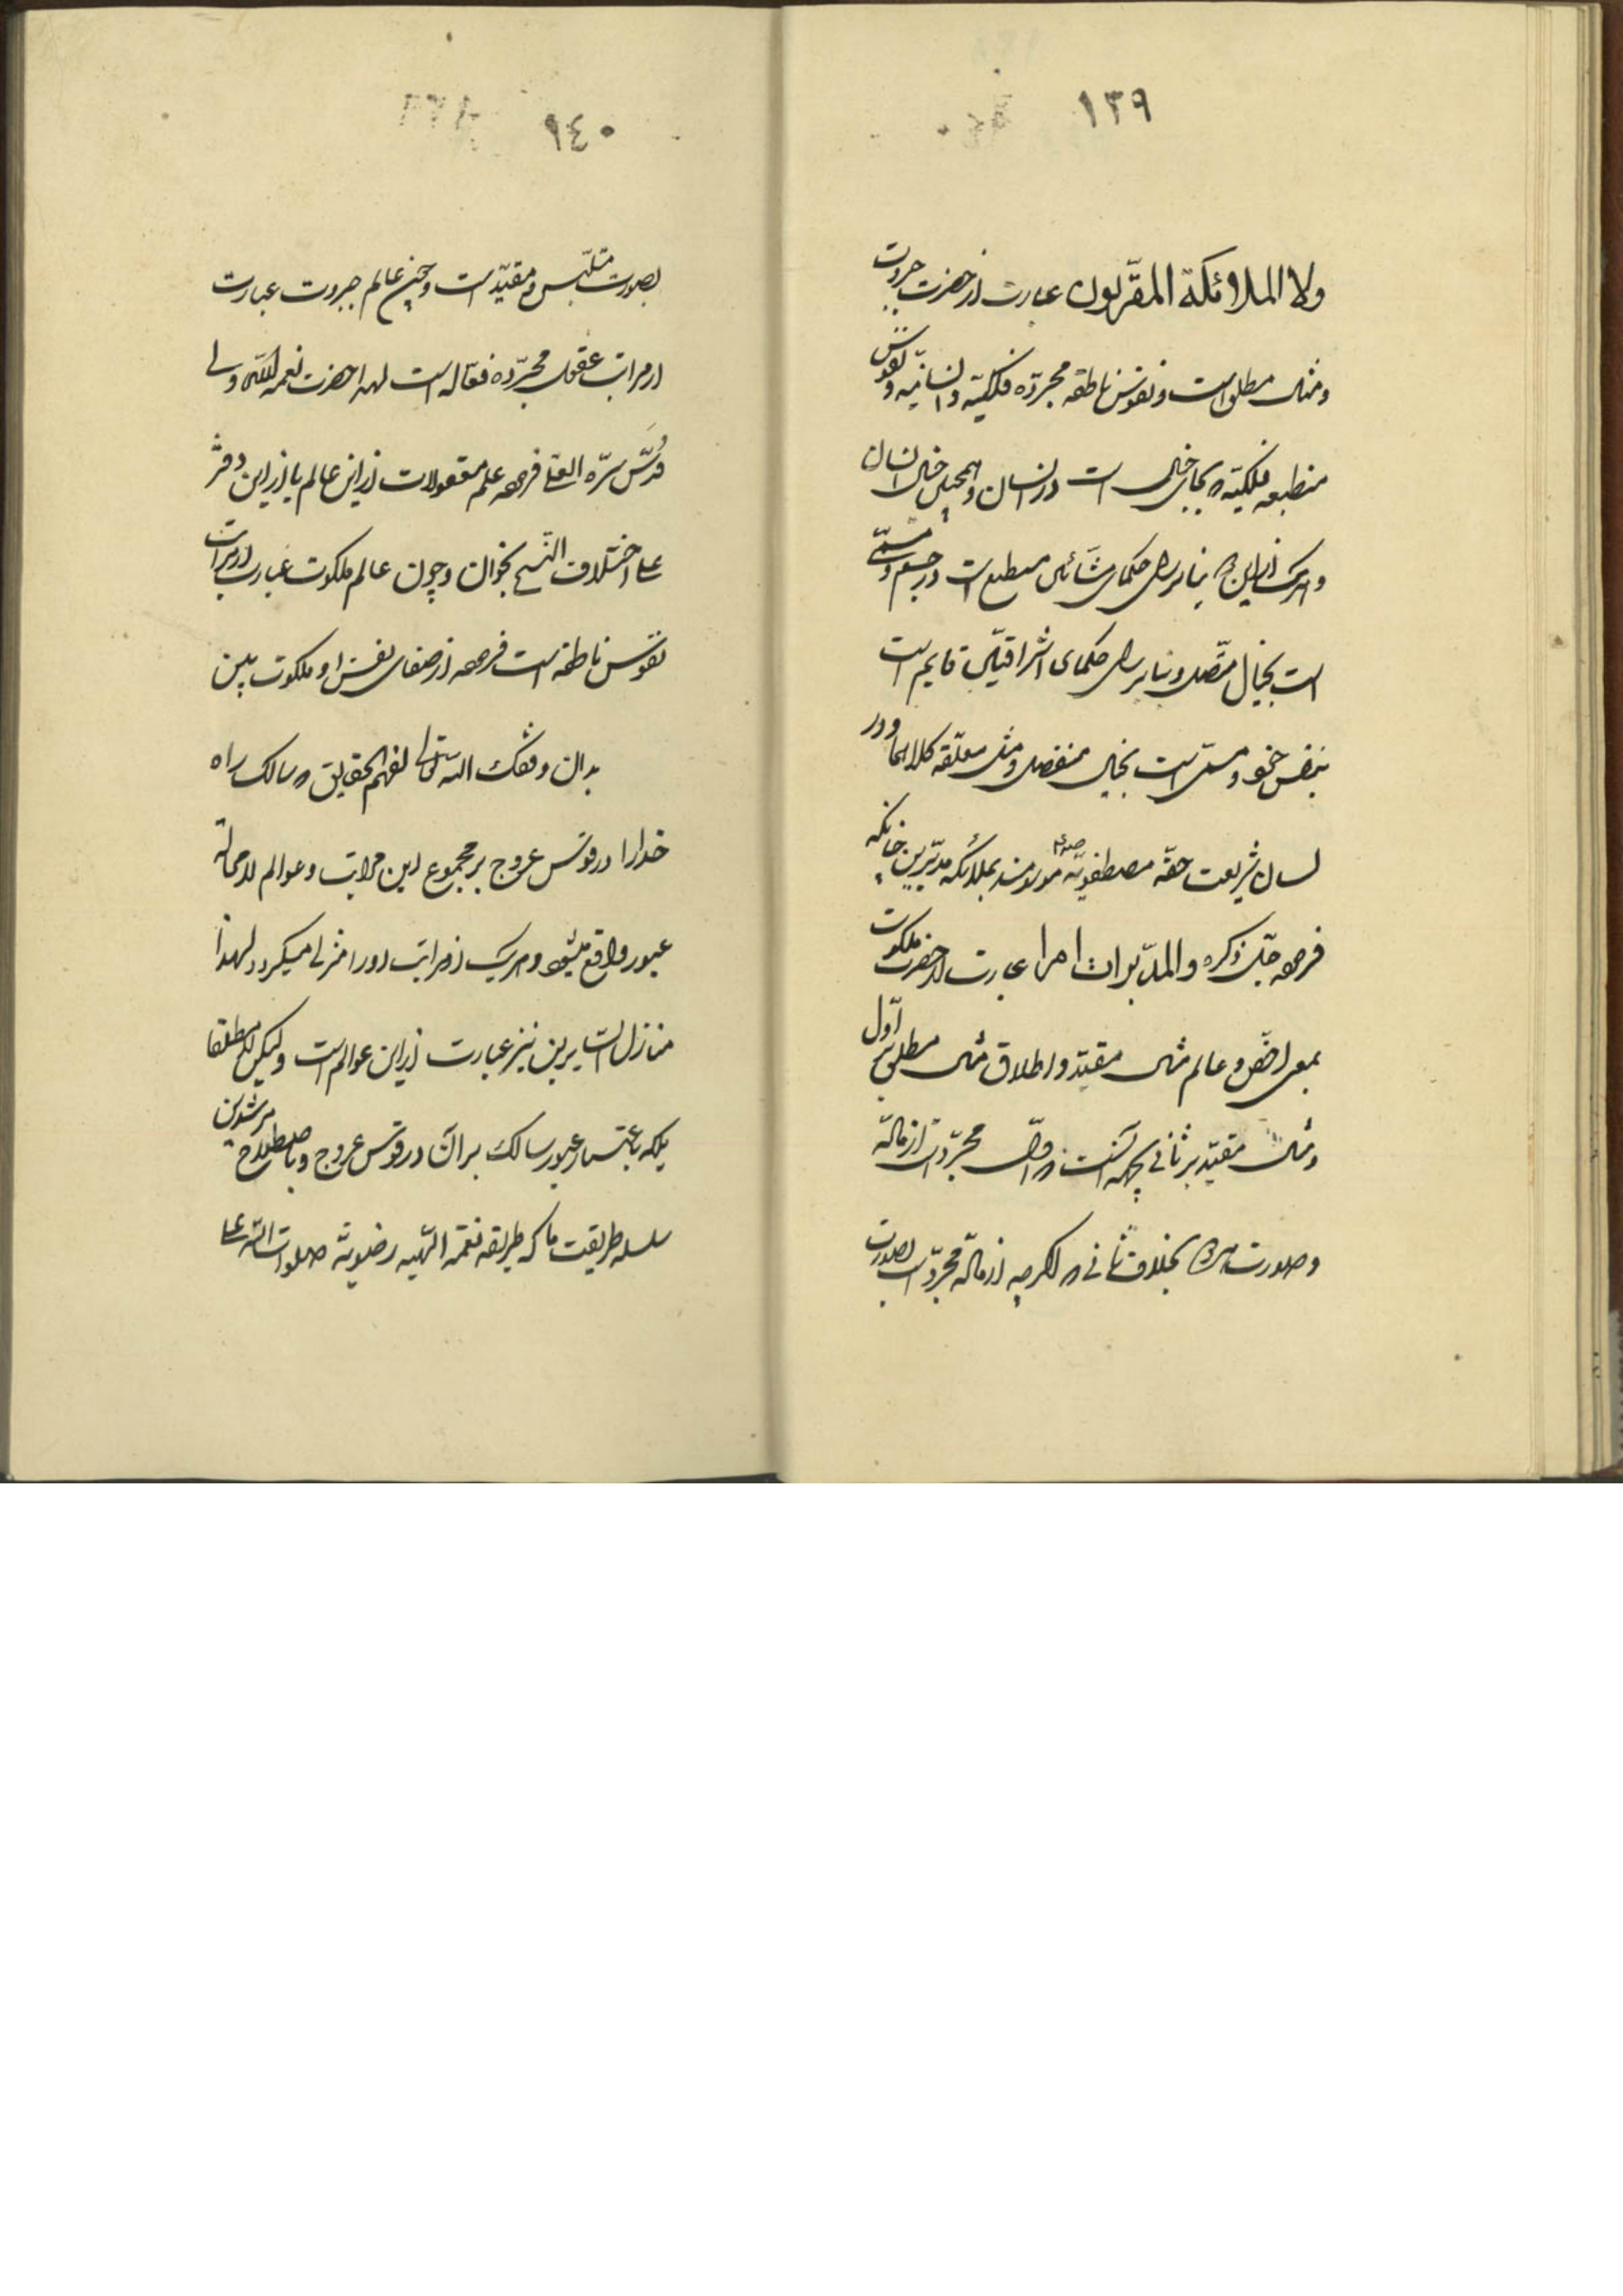 ١٣٩
ولا الملائكة المقرّبون عبارت از حضرت جبروت
ومثال مطلق است ونفوس ناطقه مجرّده فلكيّه وانسانيّه ونفوس
منطبعه فلكيّه كه بجاى خيال است در انسان وهمچنين خيال انسان
وهريك از اين كه بنابر راى حكماى مشّائين منطبع است در جسم ومسمّى
است بخيال متّصل وبنابر راى حكماى اشراقيّين قايم است
بنفس خود ومسمّى است بخيال منفصل ومثل معلّقه كلاهما ودر
لسان شريعت حقّه مصطفويّه موسومند بملائكه مدبّرين چنانكه
فرموده جلّ ذكره والمدبّرات امرا عبارت از حضرت ملكوت
بمعنى اخصّ وعالم مثال مقيّد واطلاق مثال مطلق بر اوّل
ومثال مقيّد بر ثانى بجهة آنست كه اوّل مجرّد است از مادّه
وصورت هر دو بخلاف ثانى كه اگرچه از مادّه مجرّد است بصورت
١٤٠
بصورت متلبّس ومقيّد است وچون عالم جبروت عبارت
از مراتب عقول مجرّده فعّاله است لهذا حضرت نعمة اللّه ولى
قدّس سرّه العلى فرموده علم معقولات از اين عالم يا از اين دفتر
على اختلاف النّسخ بخوان وچون عالم ملكوت عبارت از مراتب
نفوس ناطقه است فرموده از صفاى نفس او ملكوت ببين
بدان وفّقك اللّه تعالى لفهم الحقايق كه سالك راه
خدا را در قوس عروج بر مجموع اين مراتب وعوالم لا محالة
عبور واقع ميشود وهريك از مراتب او را منزلى ميگردد لهذا
منازل السّايرين نيز عبارت از اين عوالم است وليكن لا مطلقا
بلكه باعتبار عبور سالك بر آن در قوس عروج وباصطلاح مرشدين
سلسله طريقت ما كه طريقه نعمة اللّهيه رضويّه صلوات اللّه على